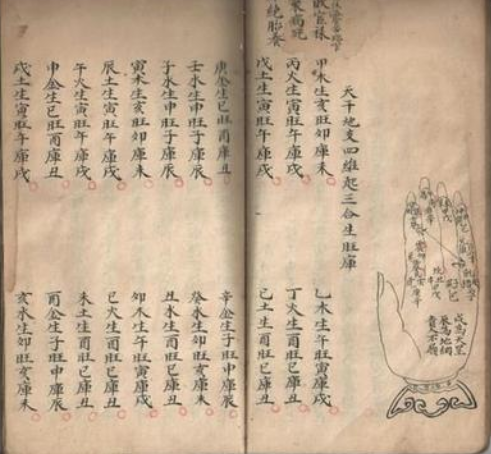 衰病死
絕胎養
戌為天罡
辰為地網
貴人不臨
天干地支四維起三合生旺庫
甲木生亥旺卯庫未
乙木生午旺寅庫戌
丙火生寅旺午庫戌
丁火生酉旺巳庫丑
戊土生寅旺午庫戌
己土生酉旺巳庫丑
庚金生巳旺酉庫丑
辛金生子旺申庫辰
壬水生申旺子庫辰
癸水生卯旺亥庫未
子水生申旺子庫辰
丑水生酉旺巳庫丑
寅木生亥旺卯庫未
卯木生午旺寅庫戌
辰土生寅旺午庫戌
巳火生酉旺巳庫丑
午火生寅旺午庫戌
未土生酉旺巳庫丑
申金生巳旺酉庫丑
酉金生子旺申庫辰
戌土生寅旺午庫戌
亥水生卯旺亥庫未